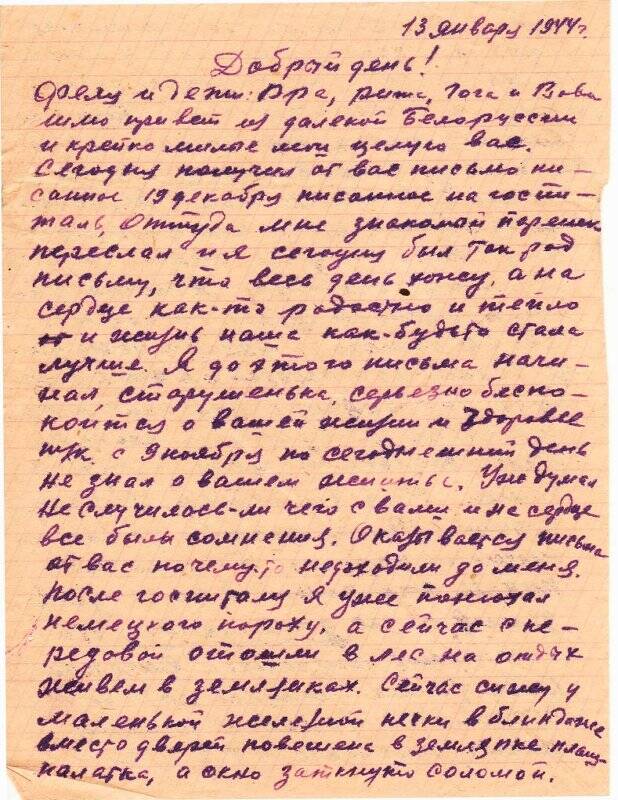 13 января 1944 г.
Добрый день!
и дети: Ира, Рита, Гога и Вова
шлю привет из далекой Белоруссии
и крепко милые мои целую вас.
Сегодня получил от вас письмо пи-
санное 19 декабря писанное на госпи-
таль, Оттуда мне знакомый паренек
переслал и я сегодня был так рад
письму, что весь день хожу, а на
сердце как-то радостно и тепло
и жизнь наша как-будьто стала
лучше. Я до этого письма начи-
нал, старушенька, серьезно беспо-
коится о вашей жизни и здоровье
т.к. с 9 ноября по сегоднешний день
не знал о вашем житье. Уже думал
не случилось-ли чего с вами и на сердце
все были сомнения. Оказывается письма
от вас почему-то недоходили до меня.
После госпиталя я уже понюхал
немецкого пороху, а сейчас с пе-
редовой отошли в лес на отдых
живем в землянках. Сейчас сижу у
маленькой железной печки в блиндаже
вместо дверей повешена в землянке плащ-
палатка, а окно заткнуто соломой.